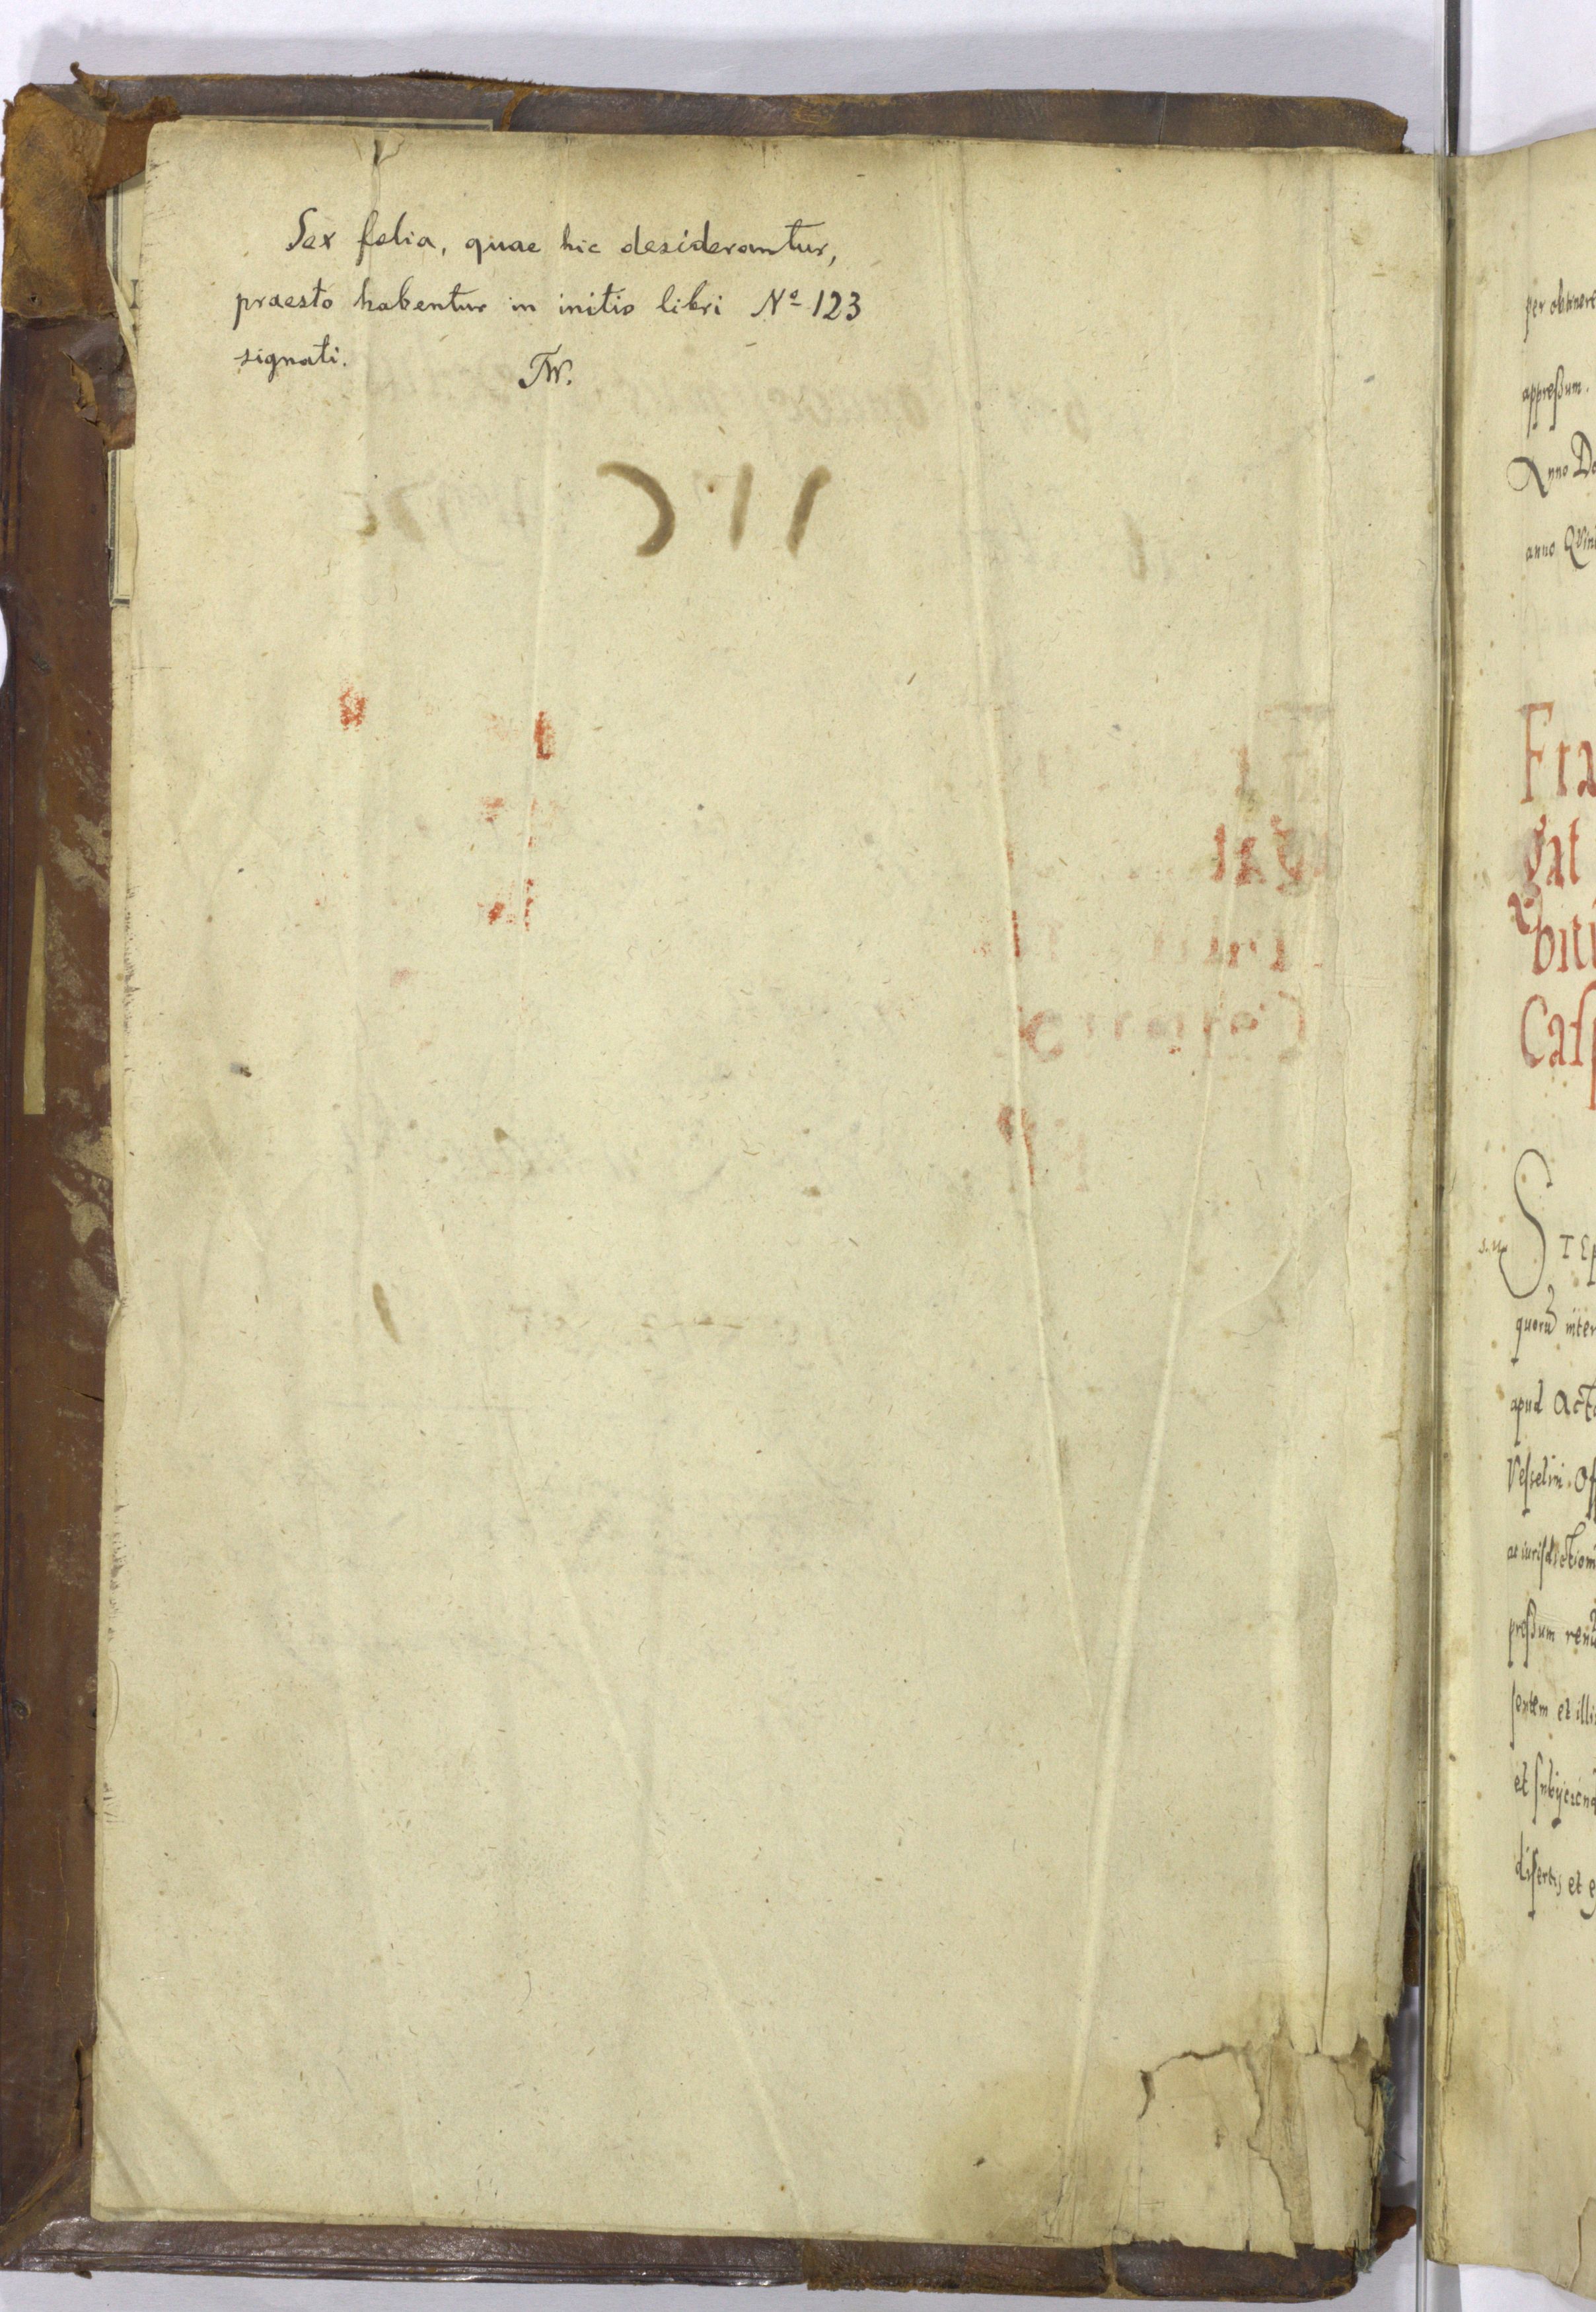 Sex folia, quae hic desiderantur,
praesto habentur in initio libri Nº 123
signati.
TW.
per obtinere
appreßum.
Anno Do
anno Quin
Fra
gat
biti
Casp
STEP
quorũ inter
apud Acta
Vesselini. Of
ac iurisdiction
preßum
sentem et illi
et subijcien
disertis et e